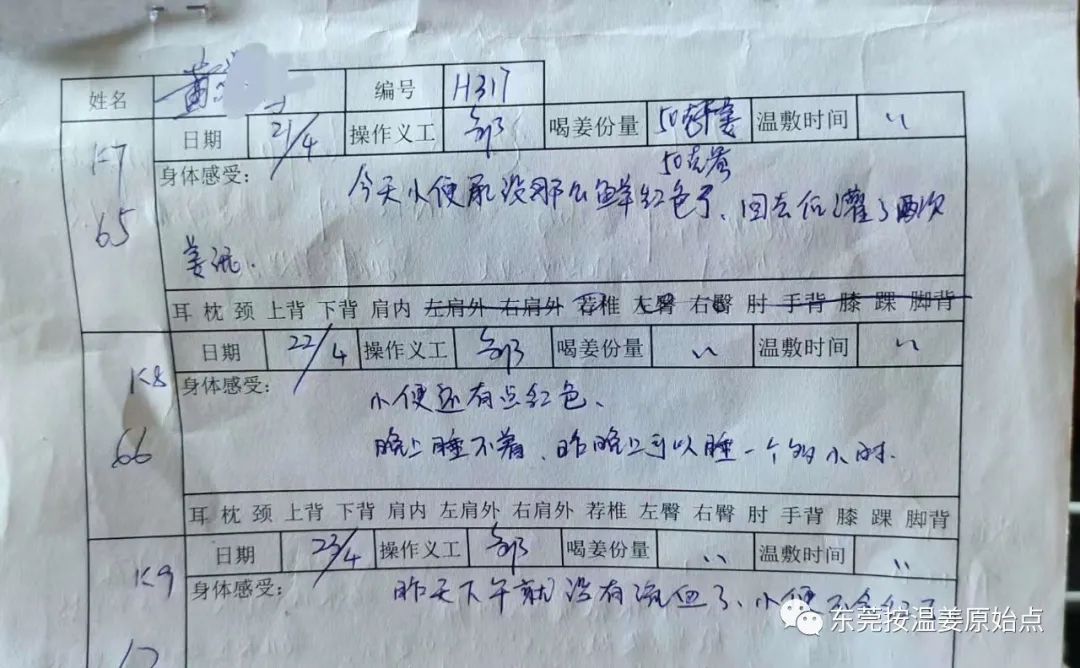 姓名 黄 编号 H317
K7 日期 21/4 操作义工 邹 喝姜份量 50克干姜 温敷时间 〃
50克黄
65 身体感受： 今天小便尿没那么鲜红色了、回去后灌了两次
姜泥.
耳 枕 颈 上背 下背 肩内 左肩外 右肩外 荐椎 左臀 右臀 肘 手背 膝 踝 脚背
K8 日期 22/4 操作义工 邹 喝姜份量 〃 温敷时间 〃
身体感受： 小便还有点红色、
66 晚上睡不着、昨晚上可以睡一个多小时.
耳 枕 颈 上背 下背 肩内 左肩外 右肩外 荐椎 左臀 右臀 肘 手背 膝 踝 脚背
K9 日期 23/4 操作义工 邹 喝姜份量 〃 温敷时间 〃
身体感受： 昨天下午就没有流血了、小便
东莞按温姜原始点